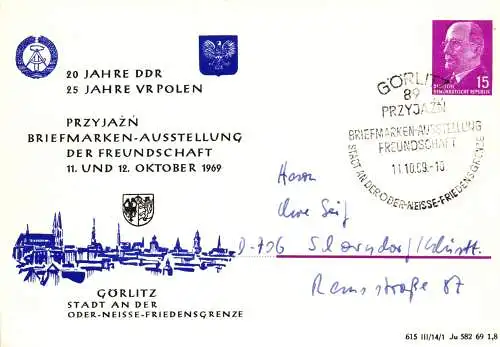 20 JAHRE DDR
25 JAHRE VR POLEN
PRZYJAŹŃ
BRIEFMARKEN-AUSSTELLUNG
DER FREUNDSCHAFT
11. UND 12. OKTOBER 1969
GÖRLITZ
STADT AN DER
ODER-NEISSE-FRIEDENSGRENZE
15
DEUTSCHE
DEMOKRATISCHE REPUBLIK
GÖRLITZ
89
PRZYJAŹŃ
BRIEFMARKEN-AUSSTELLUNG
FREUNDSCHAFT
11.10.69.-10
STADT AN DER ODER-NEISSE-FRIEDENSGRENZE
Herrn
Uwe Seif
D-706 Schorndorf/Württ.
Remsstraße 87
615 III/14/1 Ju 582 69 1,8